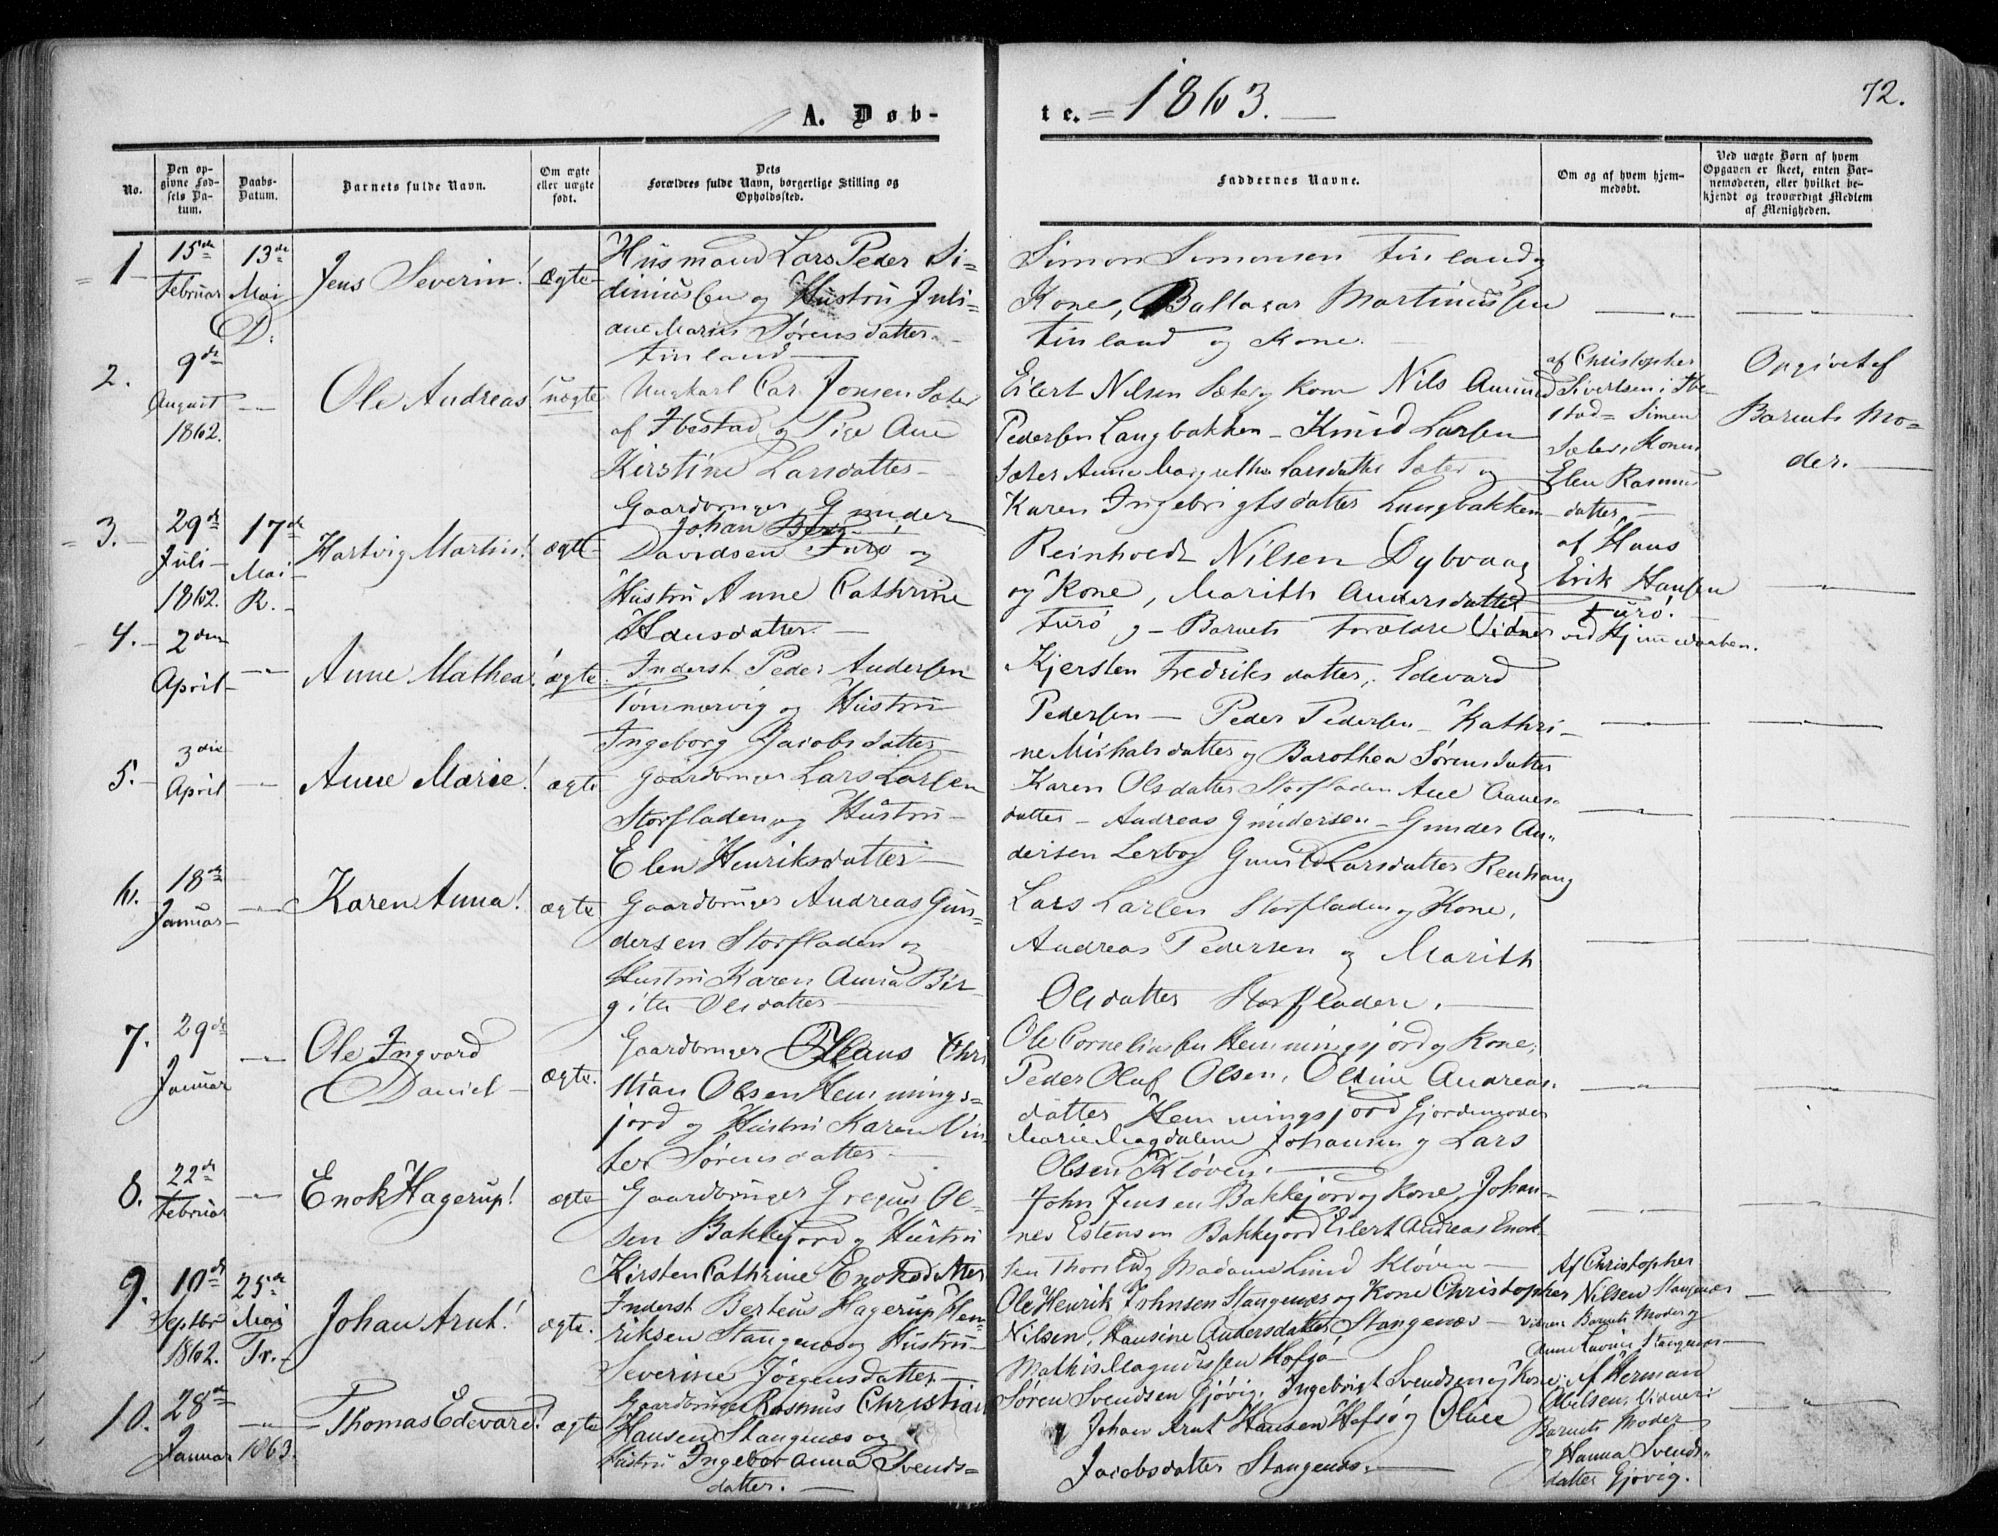 72.
A. Døb-
te. = 1863. —
No.
Den op-
givne Fød-
sels Da-
tum.
Daabs-
Datum.
Barnets fulde Navn.
Om ægte
eller uægte
født.
Dets
Forældres fulde Navn, borgerlige Stilling og
Opholdssted.
Faddernes Navne.
Om og af hvem hjem-
medøbt.
Ved uægte Børn af hvem
Opgaven er skeet, enten Bar-
nemoderen, eller hvilket be-
kjendt og troværdigt Medlem
af Menigheden.
1
15de
Februar
13de
Mai
D.
Jens Severin!
Ægte
Husmand Lars Peder Si=
diniussen og Hustru Juli=
ane Marie Sørensdatter
Finland
Simon Simonsen Finland og
Kone, Baltazar Martinussen
Finland og Kone.
2.
9de
August
1862.
Ole Andreas
uægte
Ungkarl Car. Jonsen Sæter
af Ibestad og Pige Ane
Kirstine Larsdatter
Eilert Nilsen Sæter og Kone Nils Amund
Pedersen Langbakken - Knud Larsen
Sæter Anne Margrethe Larsdatter Sæter og
Karen Ingebrigtsdatter Langbakken
af Christopher
Sivertsen i Ibe
stad = Simen
Sæter, Konen
Elen Rasmus
datter
Opgivet af
Barnets Mo=
der.
3.
29de
Juli
1862.
17de
Mai
R.
Hartvig Martin!
ægte
Gaardbruger Gunder
Johan Berg
Davidsen Furø og
Hustru Anne Cathrine
Hansdatter
Reinholdt Nilsen Dybvaag
og Kone, Marith Andersdatter
Furø og - Barnets Forældre Vidner
af Hans
Erik Hansen
Furø.
ved Hjemmedaaben.
4.
2den
April
Anne Mathea!
ægte.
Inderst Peder Andersen
Tømmervig og Hustru
Ingeborg Jacobsdatter
Kjersten Fredriksdatter, Edevard
Pedersen - Peder Pedersen - Kathri-
ne Michalsdatter og Barothea Sørensdatter
5.
3die
April
Anne Marie!
ægte
Gaardbruger Lars Larsen
Storfladen og Hustru
Elen Henriksdatter
Karen Olsdatter Storfladen Ane Aanes-
datter - Andreas Gundersen - Gunder An-
dersen Lerbog Gunild Larsdatter Renhaug
6.
18de
Januar
Karen Anna!
ægte
Gaardbruger Andreas Gun=
dersen Storfladen og
Hustru Karen Anna Bir-
gitte Olsdatter
Lars Larsen Storfladen og Kone,
Andreas Pedersen og Marith
Olsdatter Storfladen.
7.
29de
Januar
Ole Ingvard
Daniel
ægte.
Gaardbruger Hans Chri
stian Olsen Hemmings=
jord og Hustru Karen Vin=
ter Sørensdatter
Ole Corneliussen Hemmingsjord og Kone,
Peder Oluf Olsen, Oldine Andreas-
datter Hemmingsjord Gjordemoder
Marie Magdalene Johannes og Lars
Olsen Kløven.
8.
22de
Februar
Enok Hagerup!
ægte
Gaardbruger Gregus Ol-
sen Bakkejord og Hustru
Kirsten Cathrine Enoksdatter
John Jensen Bakkejord og Kone, Johan-
nes Estensen Bakkejord Eilert Andreas Enok-
sen Thorslid og Madame Lund Kløven
9.
10de
Septbr
1862.
25de
Mai
Tr.
Johan Arnt!
ægte.
Inderst Berteus Hagerup Hen=
riksen Stangenæs og Hustru
Severine Jørgensdatter
Ole Henrik Johnsen Stangenæs og Kone Christopher
Nilsen, Hansine Andersdatter Stangenæs
Mathis Magnussen Hofsø
Af Christopher
Nilsen Stangenæs
Vidner Barnets Moder og
Anne Lavine Stangenæs
10.
28de
Januar
1863.
Thomas Edevard!
ægte
Gaardbruger Rasmus Christian
Hansen Stangenæs og
Hustru Ingebor Anna Svends=
datter.
Søren Svendsen Gjøvig, Ingebrigt Svendsen og Kone,
Johan Arnt Hansen Hofsø og Oline
Jacobsdatter Stangenæs.
Af Herman
Abelsen, Vidner
Barnets Moder
og Hanna Svends-
datter Gjøvig.